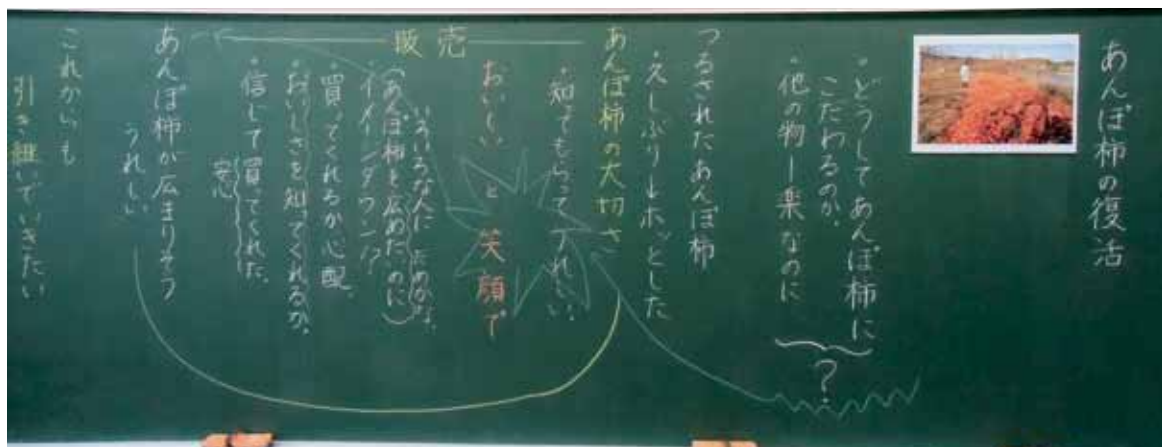 あんぽ柿の復活
・どうしてあんぽ柿に
こだわるのか。
・他の物ー楽なのに
?
つるされたあんぽ柿
・久しぶり↓ホッとした
あんぽ柿の大切さ
・知ってもらってうれしい。
おいしい と 笑顔で
販売
いろいろな人に
(あんぽ柿を広めたのに)
・イメージダウン!?
・買ってくれるか心配。
・おいしさを知ってくれるか。
・信じて買ってくれた。
安心
あんぽ柿が広まりそう
うれしい
これからも
引き継いでいきたい